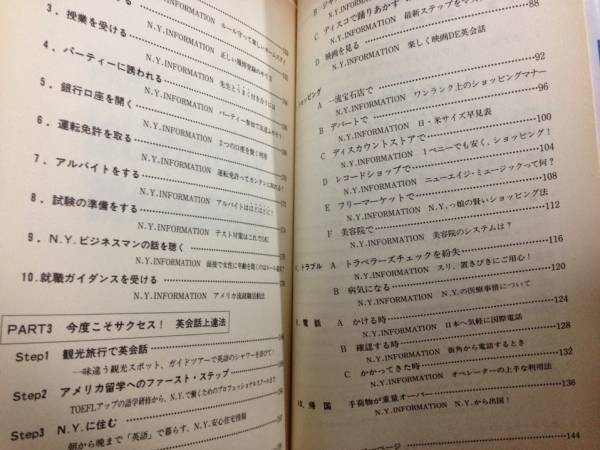 3. 授業を受ける
N.Y.INFORMATION
4. パーティーに誘われる
N.Y.INFORMATION 先生とうまく付き合うには
5. 銀行口座を開く
N.Y.INFORMATION
6. 運転免許を取る
N.Y.INFORMATION 2つの口座を賢く利用
7. アルバイトをする
N.Y.INFORMATION 運転免許ってカンタンに取れる!
8. 試験の準備をする
N.Y.INFORMATION アルバイトはほどほどに!
9. N.Y.ビジネスマンの話を聴く
N.Y.INFORMATION テスト対策はこれでOK!
10. 就職ガイダンスを受ける
N.Y.INFORMATION
N.Y.INFORMATION アメリカ流就職活動法
PART3 今度こそサクセス! 英会話上達法
Step1 観光旅行で英会話
一味違う観光スポット、ガイドツアーで英語のシャワーを浴びて!
Step2 アメリカ留学へのファースト・ステップ
TOEFLアップの語学研修から、N.Y.で働くためのプロフェッショナルスクールまで
Step3 N.Y.に住む
朝から晩まで「英語」で暮らす、N.Y.安心住宅情報
C ディスコで踊りあかす 88
N.Y.INFORMATION
D 映画を見る
N.Y.INFORMATION 楽しく映画DE英会話
ョッピング
A 一流宝石店で 92
N.Y.INFORMATION ワンランク上のショッピングマナー
B デパートで 96
N.Y.INFORMATION 日・米サイズ早見表
C ディスカウントストアで 100
N.Y.INFORMATION 1ペニーでも安く、ショッピング!
D レコードショップで 104
N.Y.INFORMATION ニューエイジ・ミュージックって何?
E フリーマーケットで 108
N.Y.INFORMATION N.Y.っ娘の賢いショッピング法
F 美容院で 112
N.Y.INFORMATION 美容院のシステムは?
トラブル A トラベラーズチェックを紛失 116
N.Y.INFORMATION スリ、置きびきにご用心!
B 病気になる 120
N.Y.INFORMATION N.Y.の医療事情について
電話 A かける時 124
N.Y.INFORMATION 日本へ気軽に国際電話
B 確認する時 128
N.Y.INFORMATION 街角から電話するとき
C かかってきた時 132
N.Y.INFORMATION オペレーターの上手な利用法
帰国 手荷物が重量オーバー 136
N.Y.INFORMATION N.Y.から出国!
144